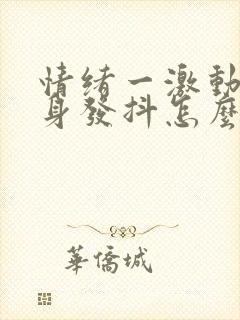 情绪一激動
身發抖怎麼
華僑城